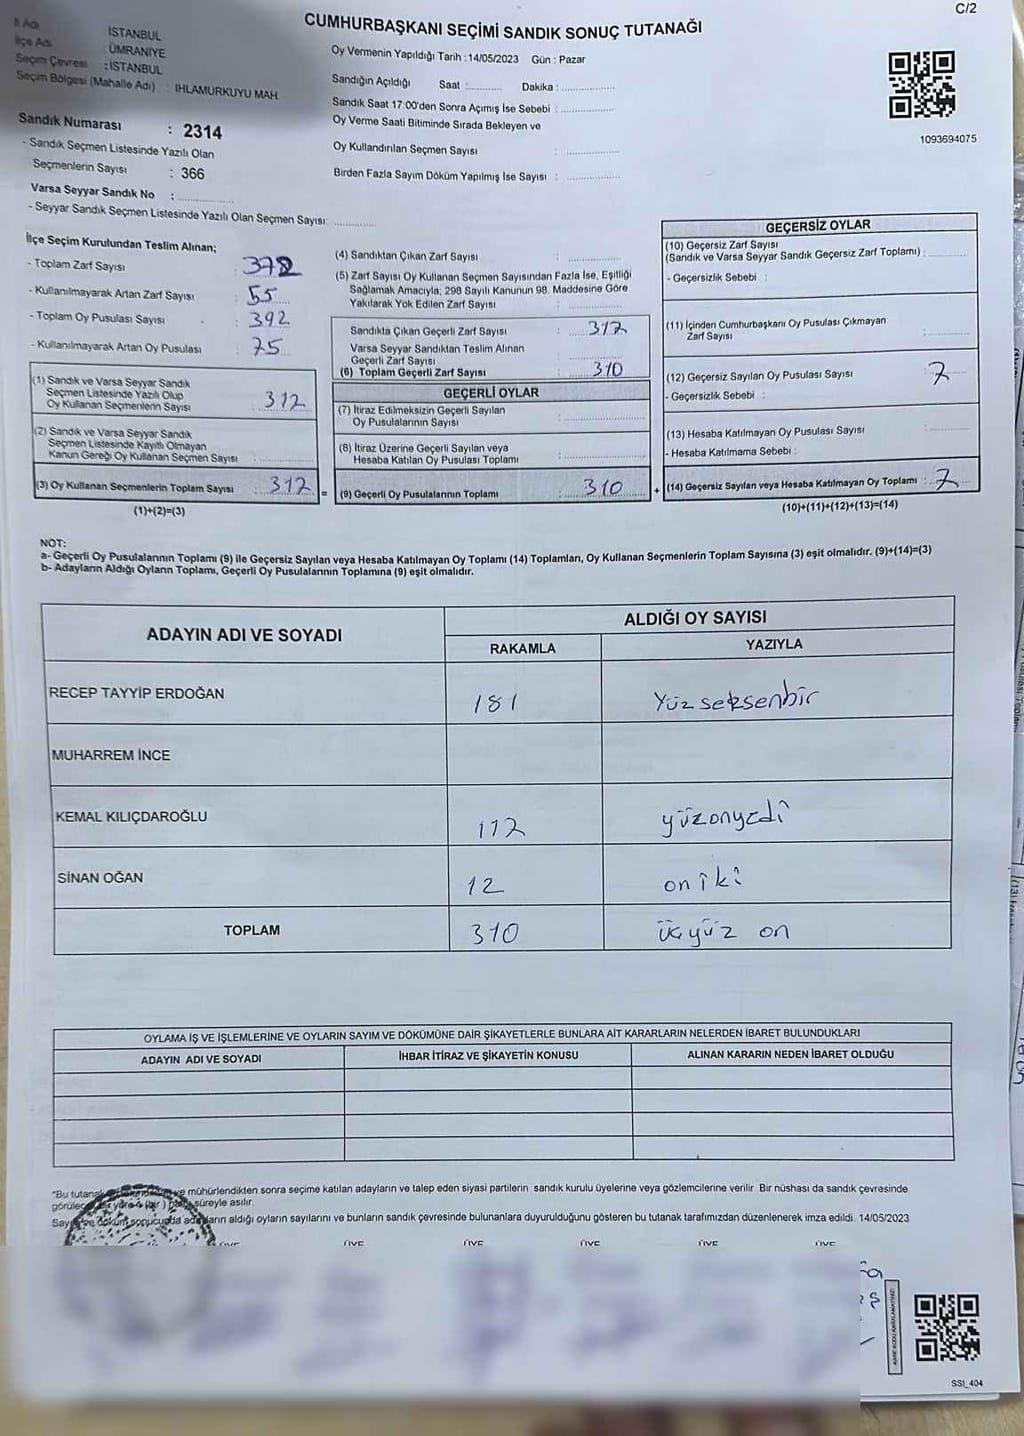 C/2
CUMHURBAŞKANI SEÇİMİ SANDIK SONUÇ TUTANAĞI
İl Adı : İSTANBUL
İlçe Adı : ÜMRANİYE
Seçim Çevresi : İSTANBUL
Seçim Bölgesi (Mahalle Adı) : IHLAMURKUYU MAH.
Sandık Numarası : 2314
- Sandık Seçmen Listesinde Yazılı Olan
Seçmenlerin Sayısı : 366
Varsa Seyyar Sandık No :
- Seyyar Sandık Seçmen Listesinde Yazılı Olan Seçmen Sayısı:
Oy Vermenin Yapıldığı Tarih : 14/05/2023 Gün : Pazar
Sandığın Açıldığı Saat : Dakika :
Sandık Saat 17:00'den Sonra Açımış İse Sebebi :
Oy Verme Saati Bitiminde Sırada Bekleyen ve
Oy Kullandırılan Seçmen Sayısı :
Birden Fazla Sayım Döküm Yapılmış İse Sayısı :
1093694075
İlçe Seçim Kurulundan Teslim Alınan;
- Toplam Zarf Sayısı : 372
- Kullanılmayarak Artan Zarf Sayısı : 55
- Toplam Oy Pusulası Sayısı : 392
- Kullanılmayarak Artan Oy Pusulası : 75
(1) Sandık ve Varsa Seyyar Sandık
Seçmen Listesinde Yazılı Olup
Oy Kullanan Seçmenlerin Sayısı : 317
(2) Sandık ve Varsa Seyyar Sandık
Seçmen Listesinde Kayıtlı Olmayan
Kanun Gereği Oy Kullanan Seçmen Sayısı :
(3) Oy Kullanan Seçmenlerin Toplam Sayısı : 317 =
(1)+(2)=(3)
(4) Sandıktan Çıkan Zarf Sayısı :
(5) Zarf Sayısı Oy Kullanan Seçmen Sayısından Fazla İse, Eşitliği
Sağlamak Amacıyla, 298 Sayılı Kanunun 98. Maddesine Göre
Yakılarak Yok Edilen Zarf Sayısı :
Sandıkta Çıkan Geçerli Zarf Sayısı : 317
Varsa Seyyar Sandıktan Teslim Alınan
Geçerli Zarf Sayısı :
(6) Toplam Geçerli Zarf Sayısı : 310
GEÇERLİ OYLAR
(7) İtiraz Edilmeksizin Geçerli Sayılan
Oy Pusulalarının Sayısı :
(8) İtiraz Üzerine Geçerli Sayılan veya
Hesaba Katılan Oy Pusulası Toplamı :
(9) Geçerli Oy Pusulalarının Toplamı : 310 +
GEÇERSİZ OYLAR
(10) Geçersiz Zarf Sayısı
(Sandık ve Varsa Seyyar Sandık Geçersiz Zarf Toplamı) :
- Geçersizlik Sebebi :
(11) İçinden Cumhurbaşkanı Oy Pusulası Çıkmayan
Zarf Sayısı :
(12) Geçersiz Sayılan Oy Pusulası Sayısı : 7
- Geçersizlik Sebebi :
(13) Hesaba Katılmayan Oy Pusulası Sayısı :
- Hesaba Katılmama Sebebi :
(14) Geçersiz Sayılan veya Hesaba Katılmayan Oy Toplamı : 7
(10)+(11)+(12)+(13)=(14)
NOT:
a- Geçerli Oy Pusulalarının Toplamı (9) ile Geçersiz Sayılan veya Hesaba Katılmayan Oy Toplamı (14) Toplamları, Oy Kullanan Seçmenlerin Toplam Sayısına (3) eşit olmalıdır. (9)+(14)=(3)
b- Adayların Aldığı Oyların Toplamı, Geçerli Oy Pusulalarının Toplamına (9) eşit olmalıdır.
ADAYIN ADI VE SOYADI
ALDIĞI OY SAYISI
RAKAMLA YAZIYLA
RECEP TAYYİP ERDOĞAN 181 Yüz seksenbir
MUHARREM İNCE
KEMAL KILIÇDAROĞLU 117 yüzonyedi
SİNAN OĞAN 12 on iki
TOPLAM 310 üçyüz on
OYLAMA İŞ VE İŞLEMLERİNE VE OYLARIN SAYIM VE DÖKÜMÜNE DAİR ŞİKAYETLERLE BUNLARA AİT KARARLARIN NELERDEN İBARET BULUNDUKLARI
ADAYIN ADI VE SOYADI İHBAR İTİRAZ VE ŞİKAYETİN KONUSU ALINAN KARARIN NEDEN İBARET OLDUĞU
"Bu tutanak ve mühürlendikten sonra seçime katılan adayların ve talep eden siyasi partilerin sandık kurulu üyelerine veya gözlemcilerine verilir. Bir nüshası da sandık çevresinde
süreyle asılır.
Sayım ve döküm sonucunda adayların aldığı oyların sayılarını ve bunların sandık çevresinde bulunanlara duyurulduğunu gösteren bu tutanak tarafımızdan düzenlenerek imza edildi. 14/05/2023
ÜYE ÜYE ÜYE ÜYE ÜYE ÜYE
SS1_404